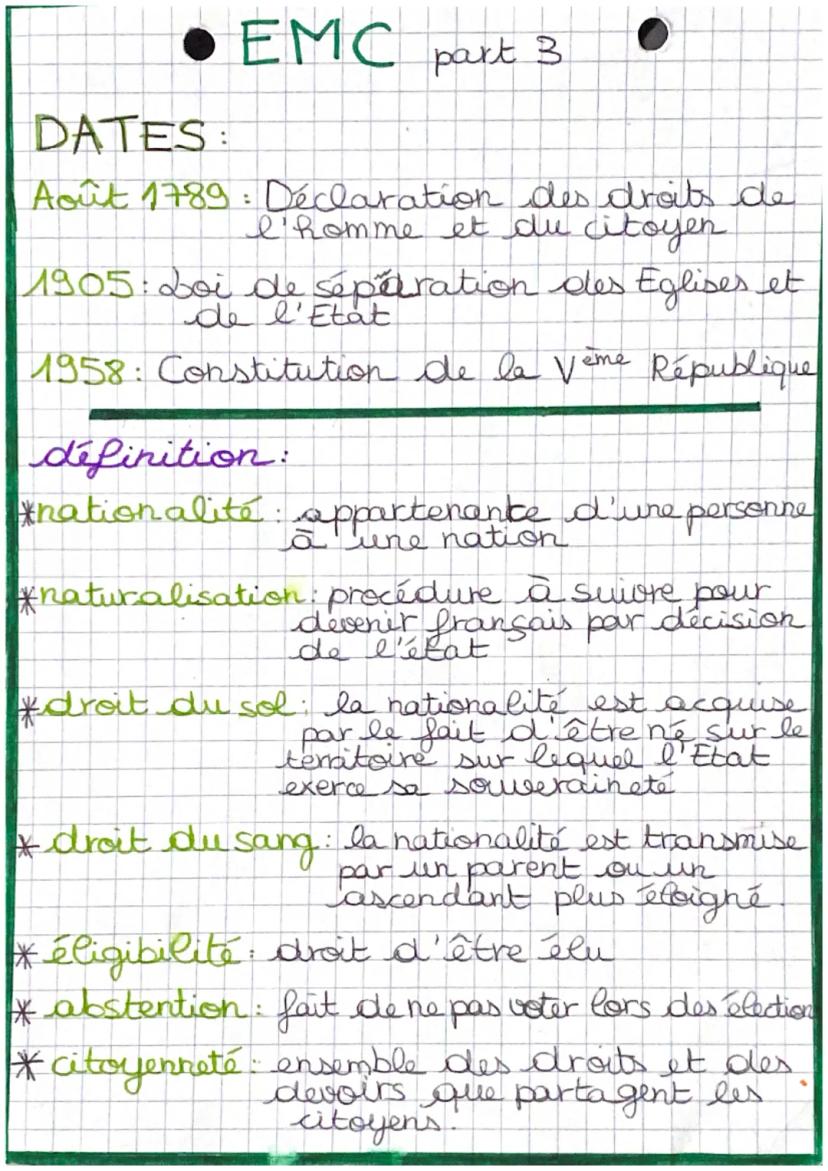 EMC part 3
DATES :
Août 1789 : Déclaration des droits de
l'homme et du citoyen
1905 : Loi de séparation des Eglises et
de l'Etat
1958 : Constitution de la Vème République
définition :
*nationalité : appartenante d'une personne
à une nation
*naturalisation : procédure à suivre pour
devenir français par décision
de l'état
*droit du sol : la nationalité est acquise
par le fait d'être né sur le
territoire sur lequel l'Etat
exerce sa souveraineté
* droit du sang : la nationalité est transmise
par un parent ou un
ascendant plus éloigné.
* éligibilité : droit d'être élu
* abstention : fait de ne pas voter lors des élection
* citoyenneté : ensemble des droits et des
devoirs que partagent les
citoyens.